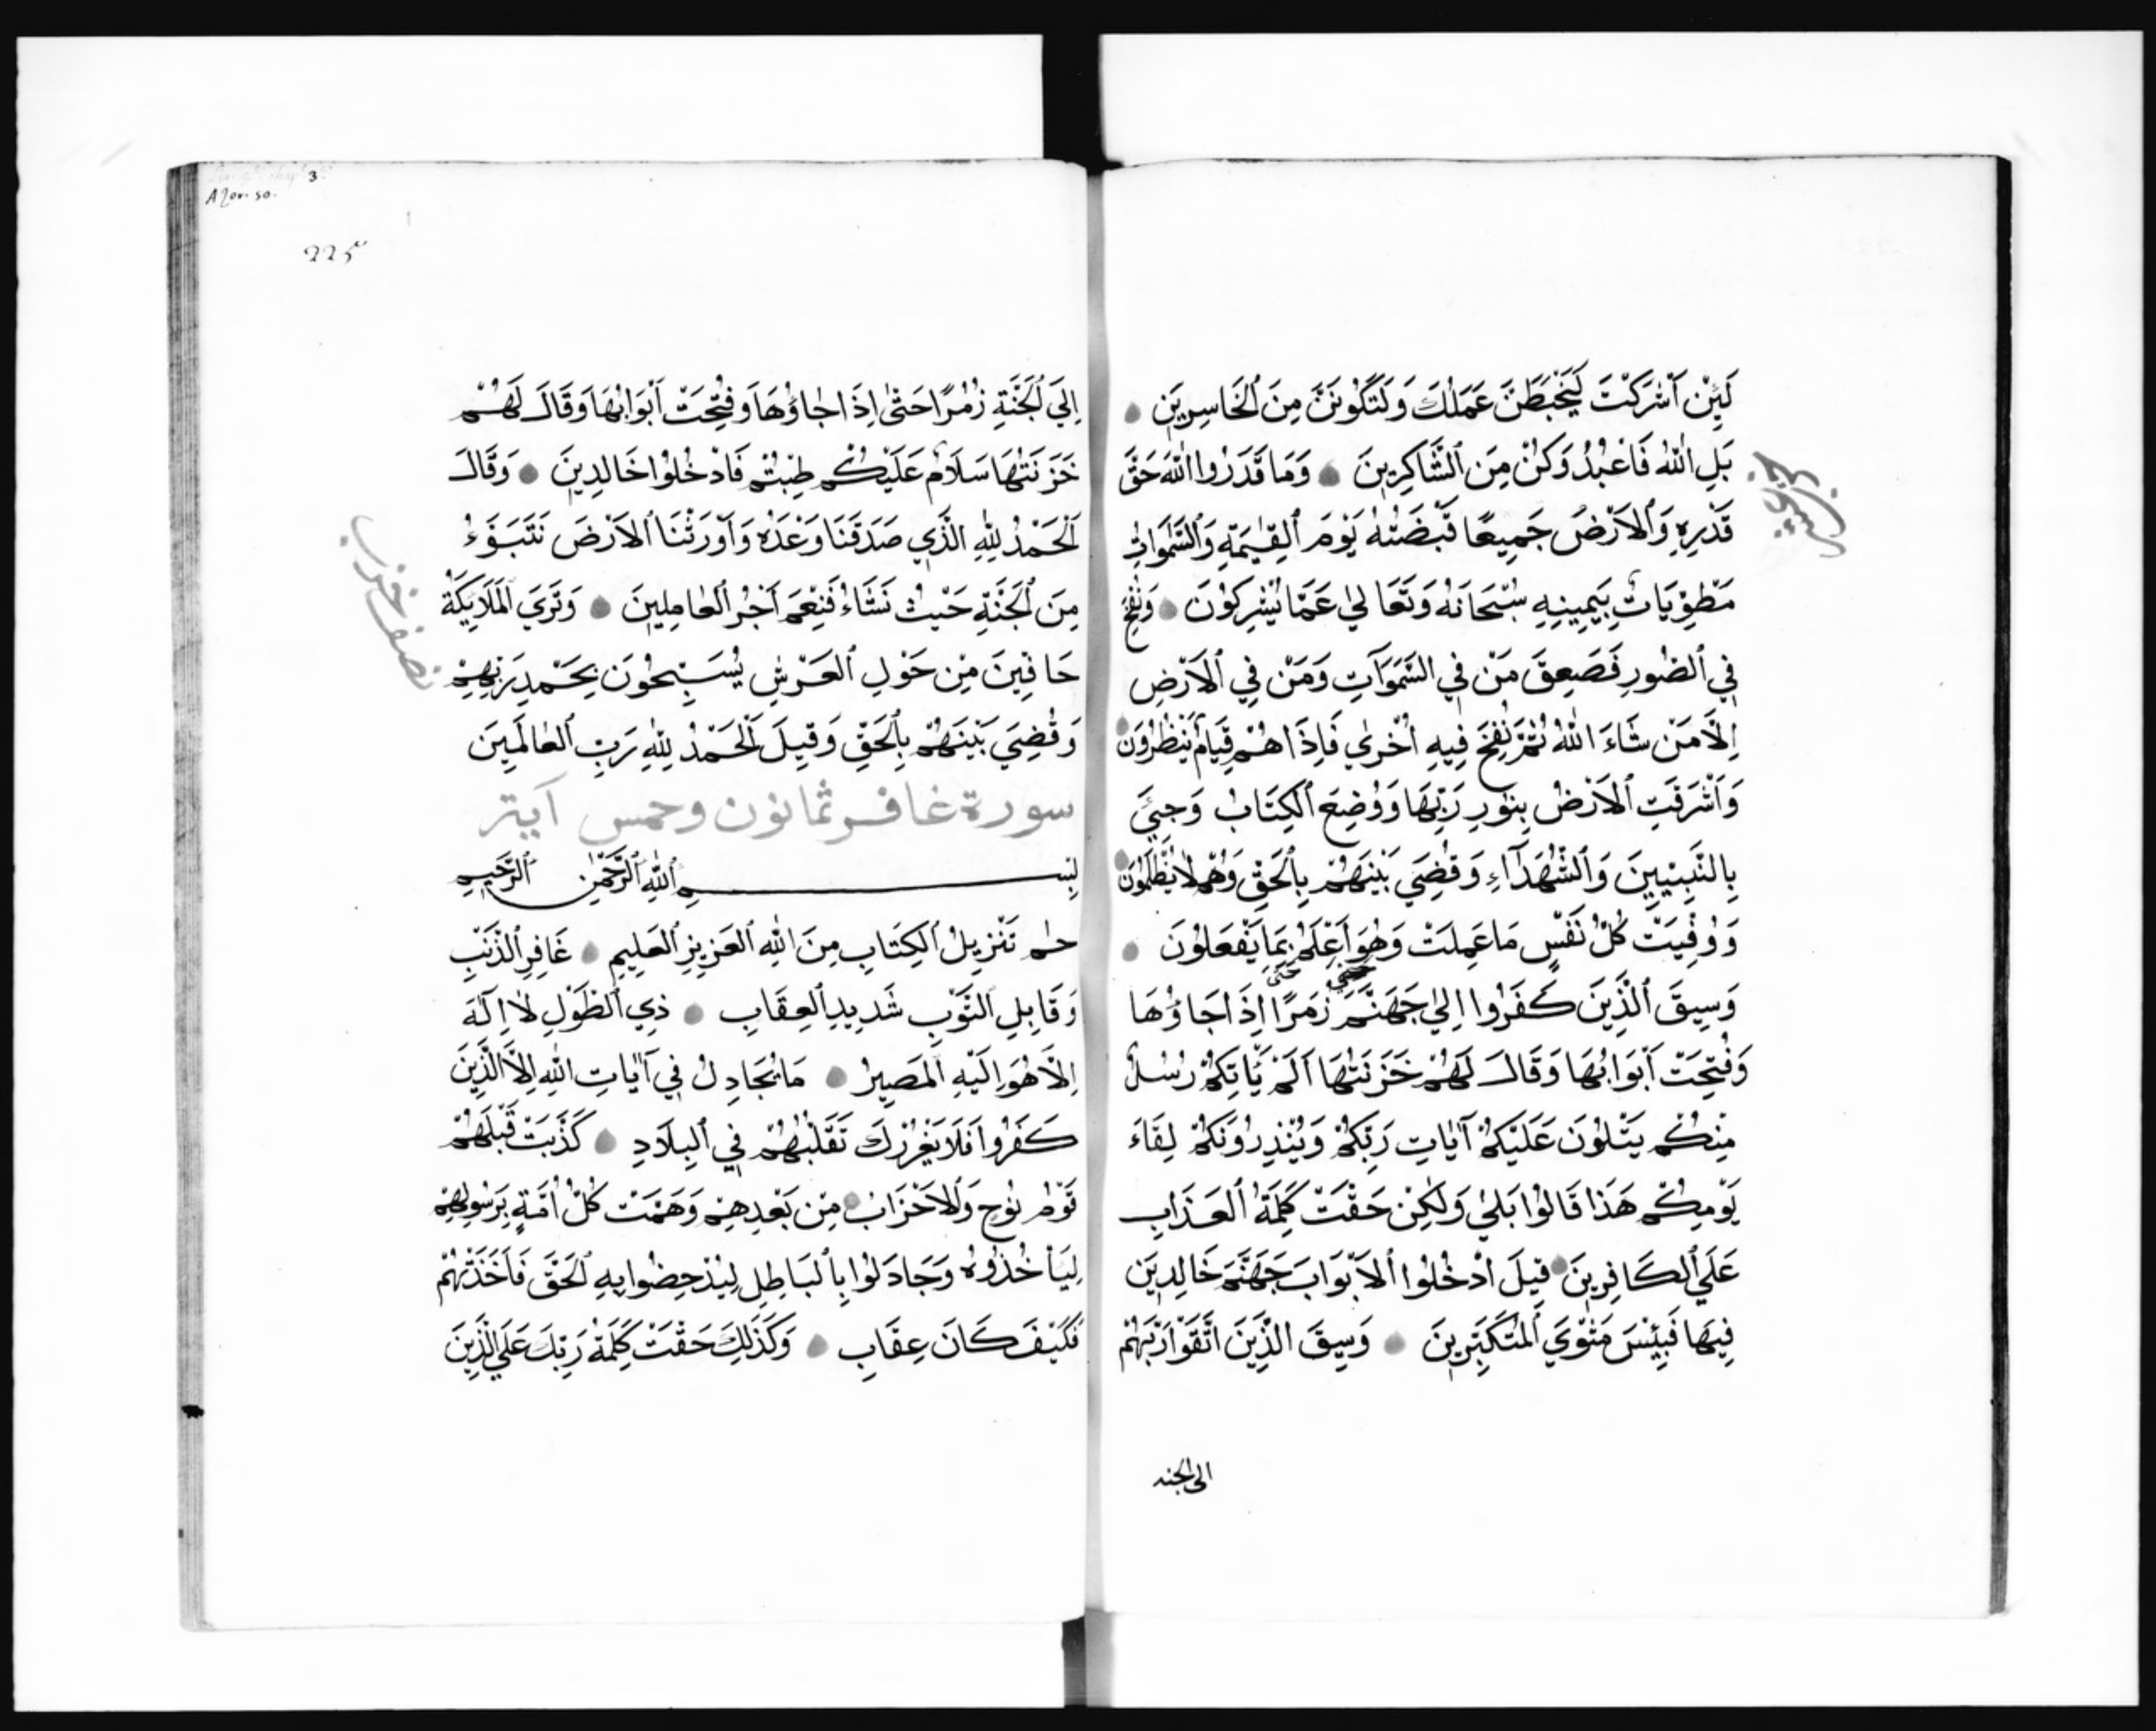 لَئِنْ اَشْرَكْتَ لَيَحْبَطَنَّ عَمَلُكَ وَلَتَكُونَنَّ مِنَ ٱلْخَاسِرِينَ
بَلِ اللّٰهَ فَاعْبُدْ وَكُنْ مِنَ ٱلشَّاكِرِينَ وَمَا قَدَرُوا اللّٰهَ حَقَّ
قَدْرِهِ وَٱلاَرْضُ جَمِيعًا قَبْضَتُهُ يَوْمَ ٱلْقِيٰمَةِ وَٱلسَّمٰوَاتُ
مَطْوِيَّاتٌ بِيَمِينِهِ سُبْحَانَهُ وَتَعَالٰي عَمَّا يُشْرِكُونَ وَنُفِخَ
فِي ٱلصُّورِ فَصَعِقَ مَنْ فِي السَّمَوَاتِ وَمَنْ فِي ٱلاَرْضِ
اِلَّا مَنْ شَاءَ اللّٰهُ ثُمَّ نُفِخَ فِيهِ اُخْرٰي فَاِذَا هُمْ قِيَامٌ يَنْظُرُونَ
وَاَشْرَقَتِ ٱلاَرْضُ بِنُورِ رَبِّهَا وَوُضِعَ ٱلْكِتَابُ وَجِئَ
بِالنَّبِيِّينَ وَٱلشُّهَدَآءِ وَقُضِيَ بَيْنَهُمْ بِٱلْحَقِّ وَهُمْ لَا يُظْلَمُونَ
وَوُفِّيَتْ كُلُّ نَفْسٍ مَا عَمِلَتْ وَهُوَ اَعْلَمُ بِمَا يَفْعَلُونَ
وَسِيقَ ٱلَّذِينَ كَفَرُوا اِلٰي جَهَنَّمَ زُمَرًا حَتَّى اِذَا جَاؤُهَا
وَفُتِحَتْ اَبْوَابُهَا وَقَالَ لَهُمْ خَزَنَتُهَا اَلَمْ يَاتِكُمْ رُسُلٌ
مِنْكُمْ يَتْلُونَ عَلَيْكُمْ آيَاتِ رَبِّكُمْ وَيُنْذِرُونَكُمْ لِقَاءَ
يَوْمِكُمْ هَذَا قَالُوا بَلٰي وَلٰكِنْ حَقَّتْ كَلِمَةُ ٱلْعَذَابِ
عَلَي ٱلْكَافِرِينَ قِيلَ ادْخُلُوا ٱلاَبْوَابَ جَهَنَّمَ خَالِدِينَ
فِيهَا فَبِئْسَ مَثْوَي ٱلْمُتَكَبِّرِينَ وَسِيقَ الَّذِينَ اتَّقَوْا رَبَّهُمْ
الى الجنه
3
Azor. 50.
225
اِلَي ٱلْجَنَّةِ زُمَرًا حَتّٰي اِذَا جَاؤُهَا وَفُتِحَتْ اَبْوَابُهَا وَقَالَ لَهُمْ
خَزَنَتُهَا سَلَامٌ عَلَيْكُمْ طِبْتُمْ فَادْخُلُوا خَالِدِينَ وَقَالَ
ٱلْحَمْدُ لِلّٰهِ الَّذِي صَدَقَنَا وَعْدَهُ وَاَوْرَثَنَا ٱلاَرْضَ نَتَبَوَّءُ
مِنَ ٱلْجَنَّةِ حَيْثُ نَشَاءُ فَنِعْمَ اَجْرُ ٱلْعٰامِلِينَ وَتَرَي ٱلْمَلَايِكَةَ
حَافِّينَ مِنْ حَوْلِ ٱلْعَرْشِ يُسَبِّحُونَ بِحَمْدِ رَبِّهِمْ
وَقُضِيَ بَيْنَهُمْ بِٱلْحَقِّ وَقِيلَ ٱلْحَمْدُ لِلّٰهِ رَبِّ ٱلْعٰالَمِينَ
نصف حزب
سورة غافر ثمانون وخمس آية
بِسْمِ ٱللّٰهِ ٱلرَّحْمٰنِ ٱلرَّحِيمِ
حٰم تَنْزِيلُ ٱلْكِتَابِ مِنَ اللّٰهِ ٱلْعَزِيزِ ٱلْعَلِيمِ غَافِرِ ٱلذَّنْبِ
وَقَابِلِ ٱلتَّوْبِ شَدِيدِ ٱلْعِقَابِ ذِي ٱلطَّوْلِ لَا اِلَهَ
اِلَّا هُوَ اِلَيْهِ ٱلْمَصِيرُ مَا يُجَادِلُ فِي آيَاتِ اللّٰهِ اِلَّا الَّذِينَ
كَفَرُوا فَلَا يَغْرُرْكَ تَقَلُّبُهُمْ فِي ٱلْبِلَادِ كَذَّبَتْ قَبْلَهُمْ
قَوْمُ نُوحٍ وَٱلاَحْزَابُ مِنْ بَعْدِهِمْ وَهَمَّتْ كُلُّ اُمَّةٍ بِرَسُولِهِمْ
لِيَأْخُذُوهُ وَجَادَلُوا بِٱلْبَاطِلِ لِيُدْحِضُوا بِهِ ٱلْحَقَّ فَاَخَذْتُهُمْ
فَكَيْفَ كَانَ عِقَابِ وَكَذَلِكَ حَقَّتْ كَلِمَةُ رَبِّكَ عَلَي الَّذِينَ